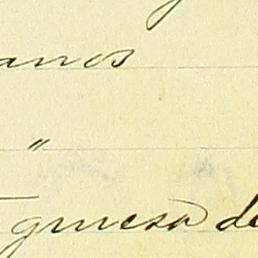 anos
"
gruesa de